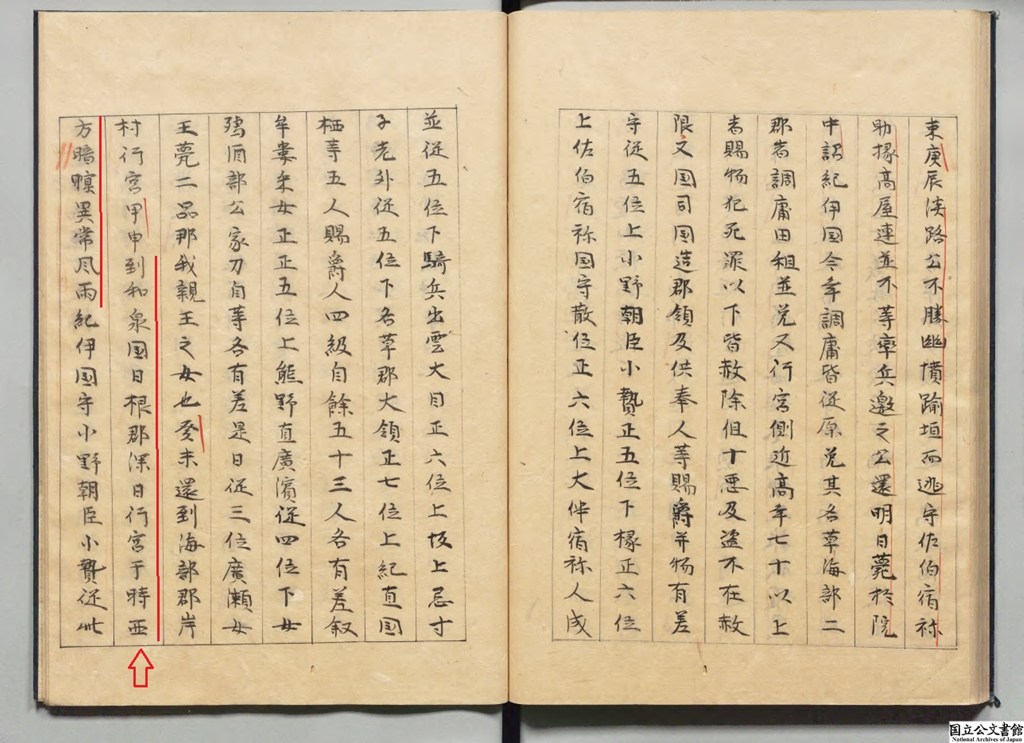 東庚辰淡路公不勝幽憤踰垣而逃守佐伯宿祢
助掾高屋連並木等率兵邀之公還明日薨於院
中詔紀伊国今年調庸皆従原免其名草海部二
郡者調庸田租並免又行宮側近高年七十以上
者賜物犯死罪以下皆赦除但十悪及盗不在赦
限又国司国造郡領及供奉人等賜爵并物有差
守従五位上小野朝臣小贄正五位下掾正六位
上佐伯宿祢国守散位正六位上大伴宿祢人成
並従五位下騎兵出雲大目正六位上坂上忌寸
子老外従五位下名草郡大領正七位上紀直国
栖等五人賜爵人四級自餘五十三人各有差叙
牟婁采女正正五位上熊野直廣濱従四位下女
孺酒部公家刀自等各有差是日従三位廣瀬女
王薨二品那我親王之女也癸未還到海部郡岸
村行宮甲申到和泉国日根郡深日行宮于時西
方暗瞑異常風雨紀伊国守小野朝臣小贄従此
国立公文書館
National Archives of Japan